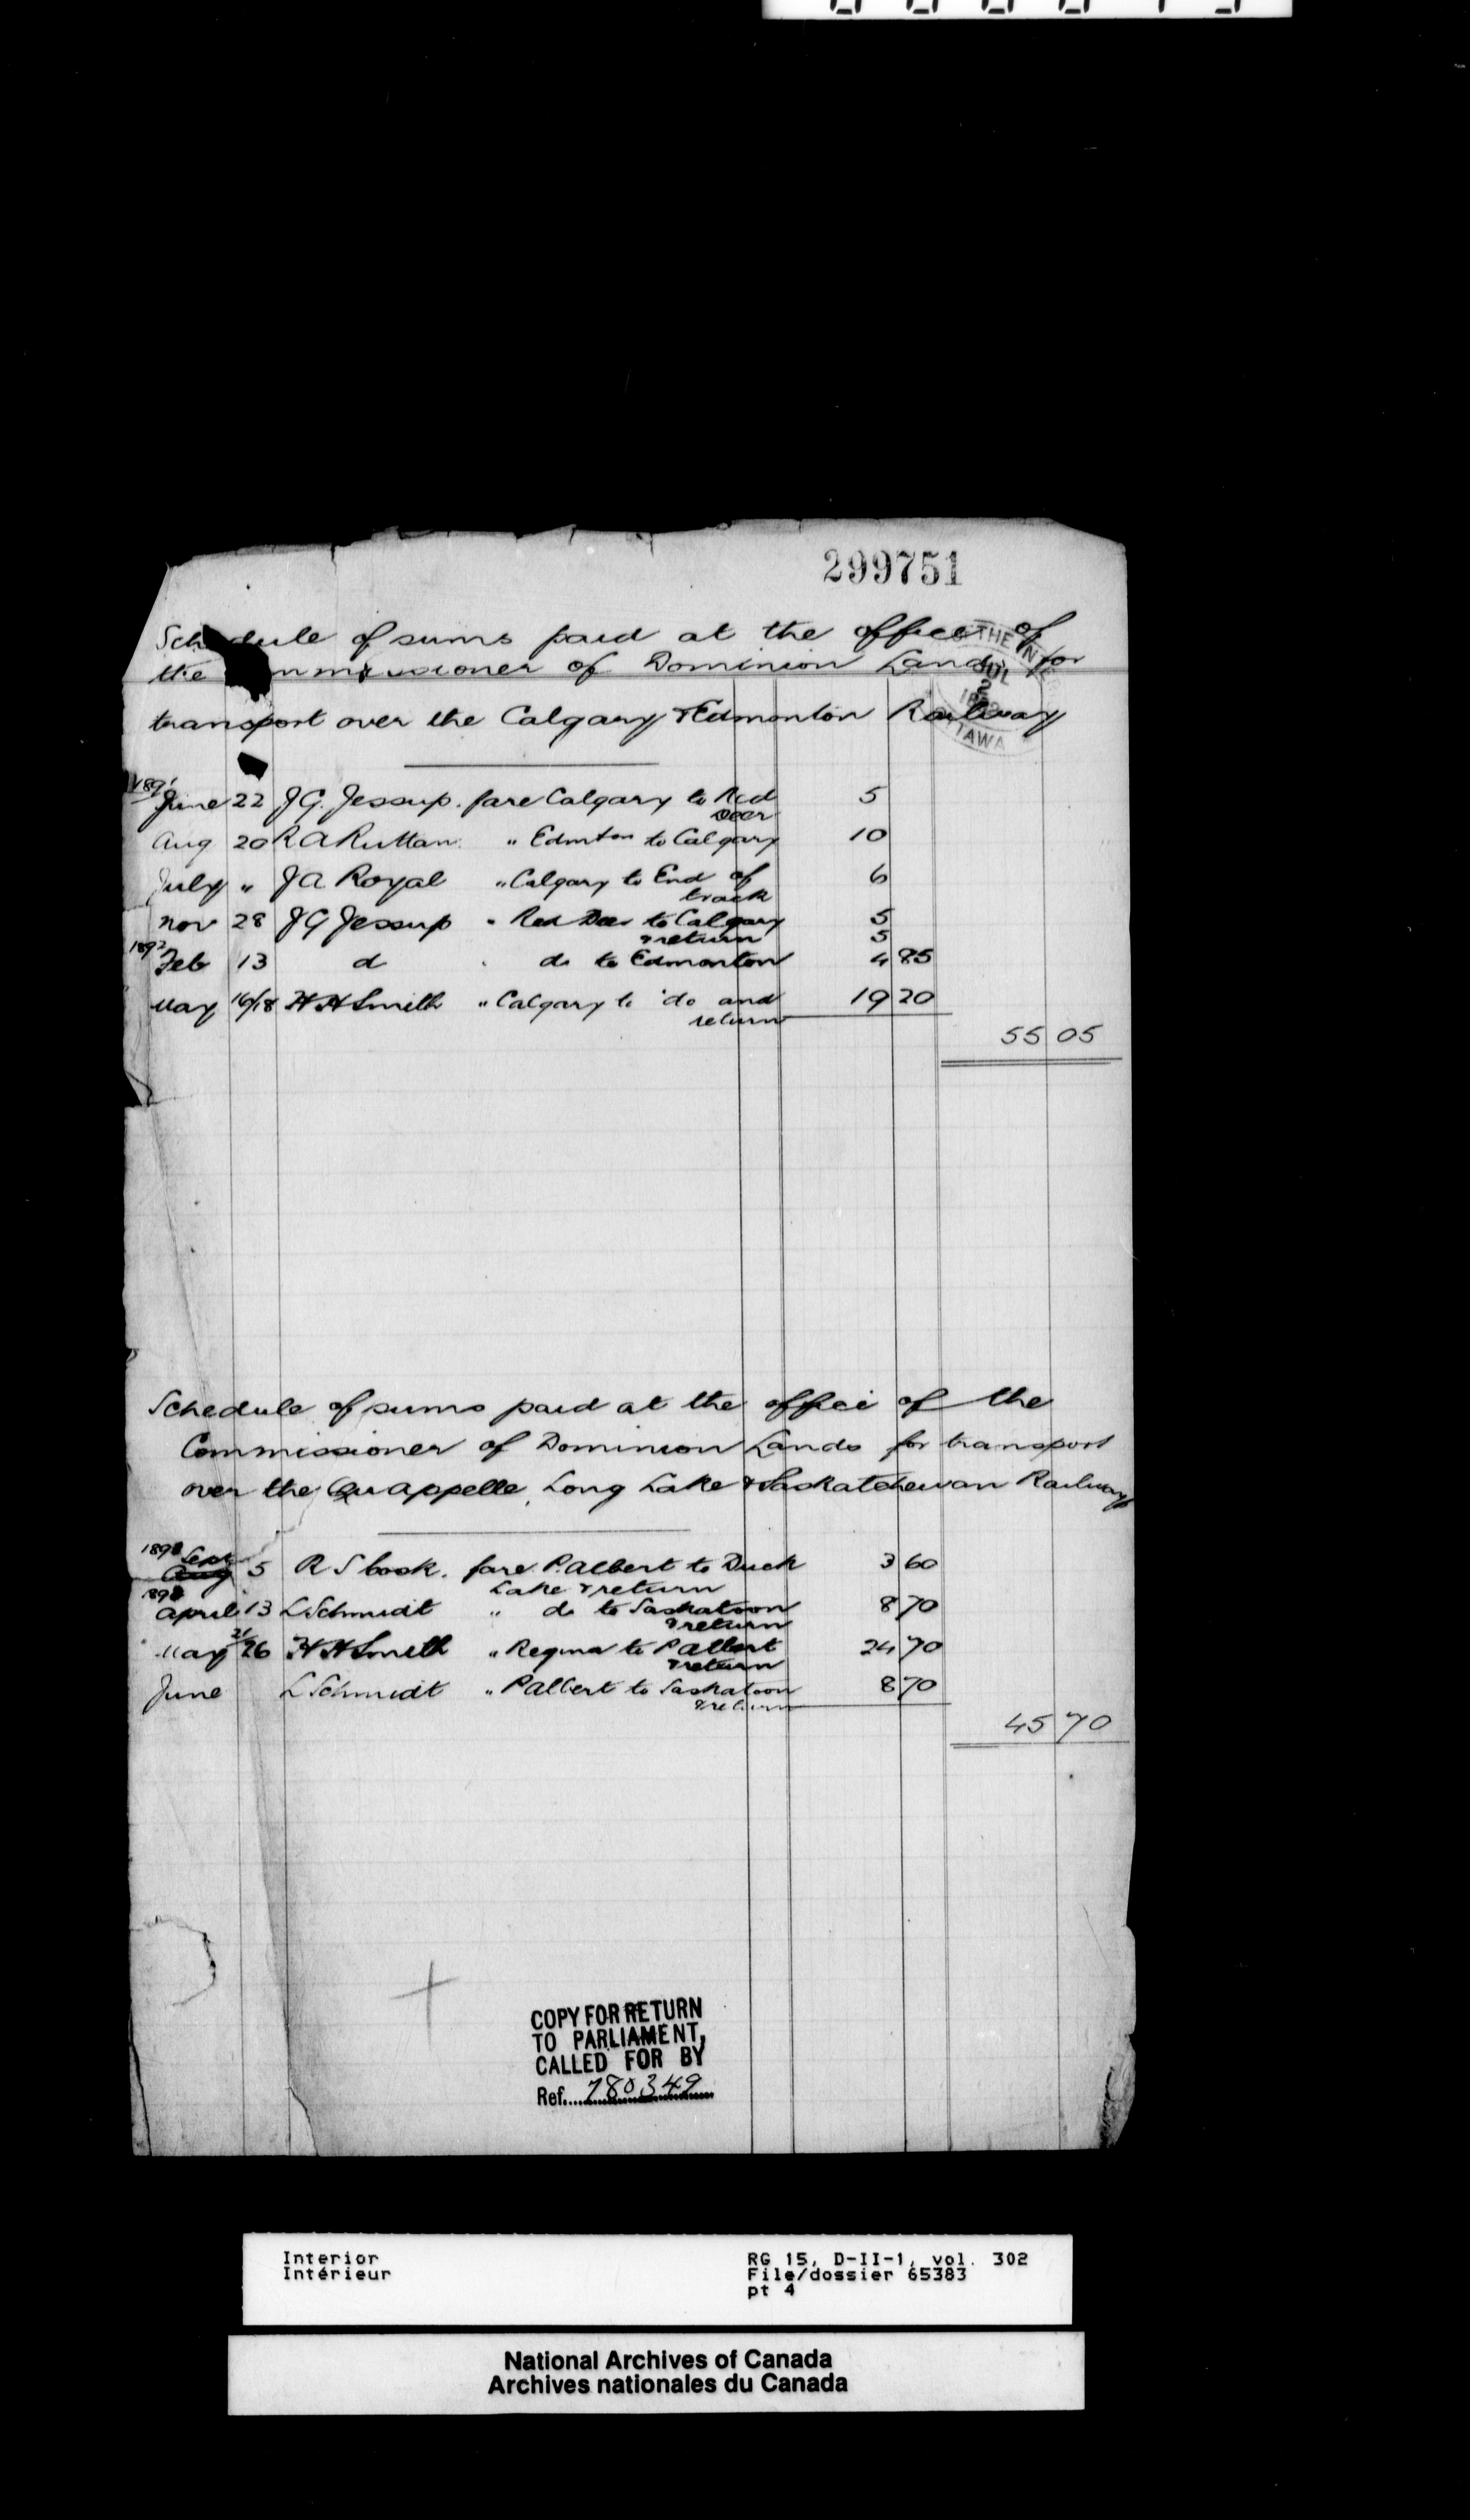 299751
Schedule of sums paid at the office of
the Commissioner of Dominion Lands for
transport over the Calgary & Edmonton Railway
THE IN
JUL
2
OTTAWA
1891
June 22 J G. Jessup. fare Calgary to Red 5
Deer
Aug 20 R A Ruttan " Edmton to Calgary 10
July " J A Royal " Calgary to End of 6
track
Nov 28 J G Jessup " Red Deer to Calgary 5
& return 5
1892
Feb 13 d " do to Edmonton 4 85
May 16/18 H H Smith " Calgary to do and 19 20
return
55 05
Schedule of sums paid at the office of the
Commissioner of Dominion Lands for transport
over the Qu appelle, Long Lake & Saskatchewan Railway
Sept
Aug 5 R S Cook. fare P. Albert to Duck 3 60
Lake & return
April 13 L Schmidt " do to Saskatoon 8 70
& return
May 21/26 H H Smith " Regina to P Albert 24 70
& return
June L Schmidt " P Albert to Saskatoon 8 70
& return
45 70
COPY FOR RETURN
TO PARLIAMENT,
CALLED FOR BY
Ref. 780349
Interior RG 15, D-II-1, vol. 302
Intérieur File/dossier 65383
pt 4
National Archives of Canada
Archives nationales du Canada